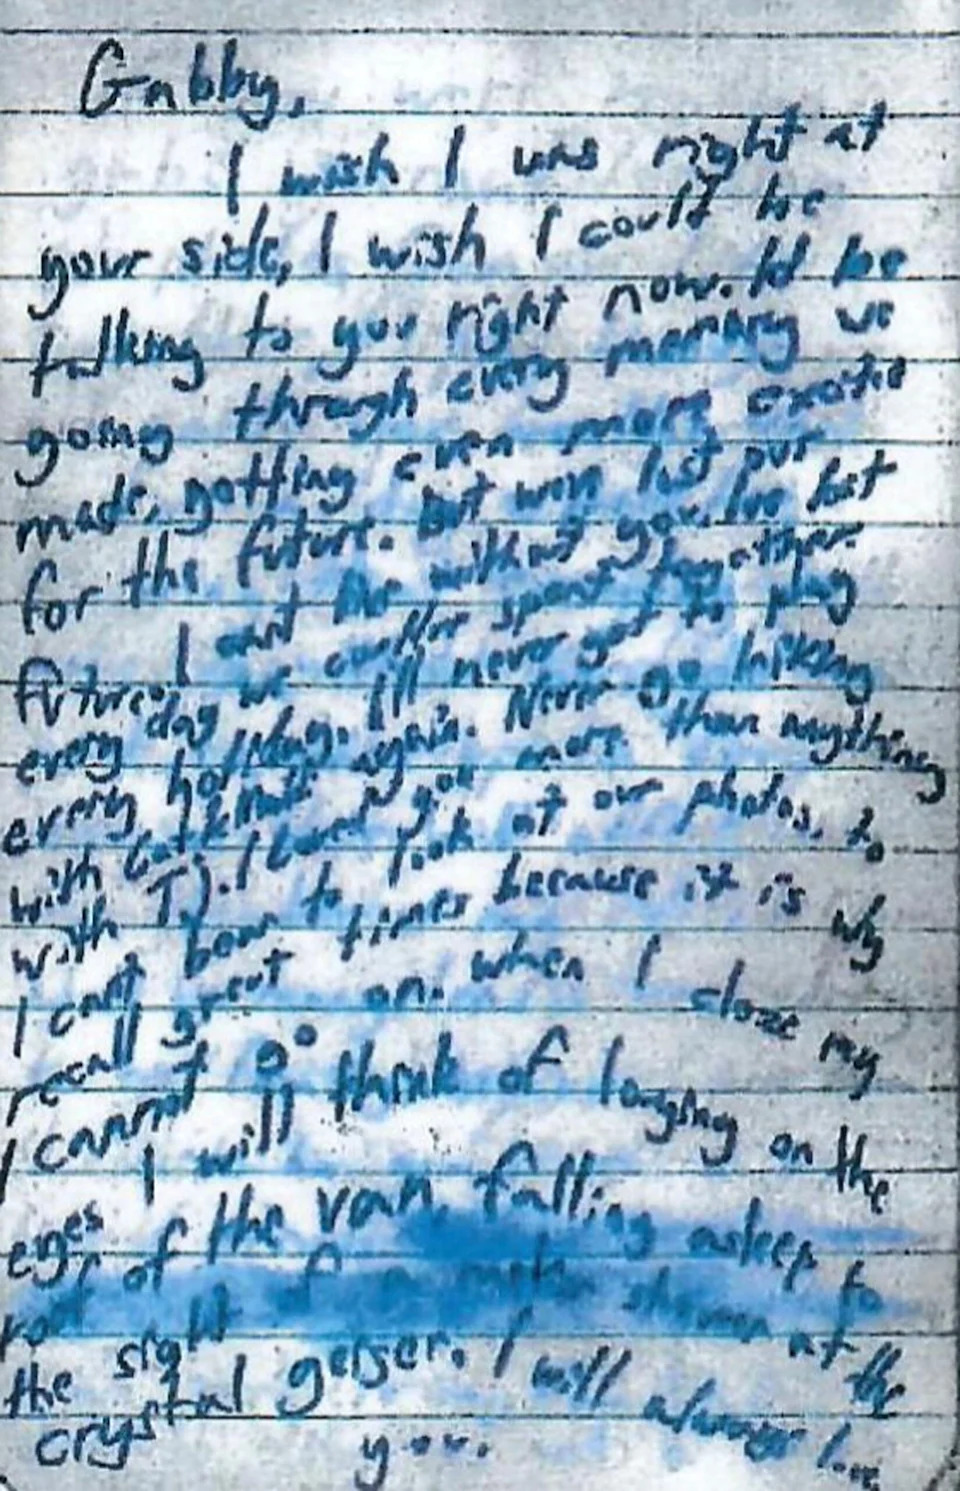 Gabby,
I wish I was right at
your side, I wish I could be
talking to you right now. Id be
going through every memory we
made, getting even more excited
for the future. But weve lost our
I cant live without you. Ive lost
future. every day we couldve spent together.
every holiday. Ill never get to play
with again. Never go hiking
with TJ. I loved you more than anything
I cant bear to look at our photos, to
recall great times because it is why
I cannot go on. when I close my
eyes I will think of laughing on the
roof of the van, falling asleep to
the sight of at the
crystal geiser. I will always love
you.